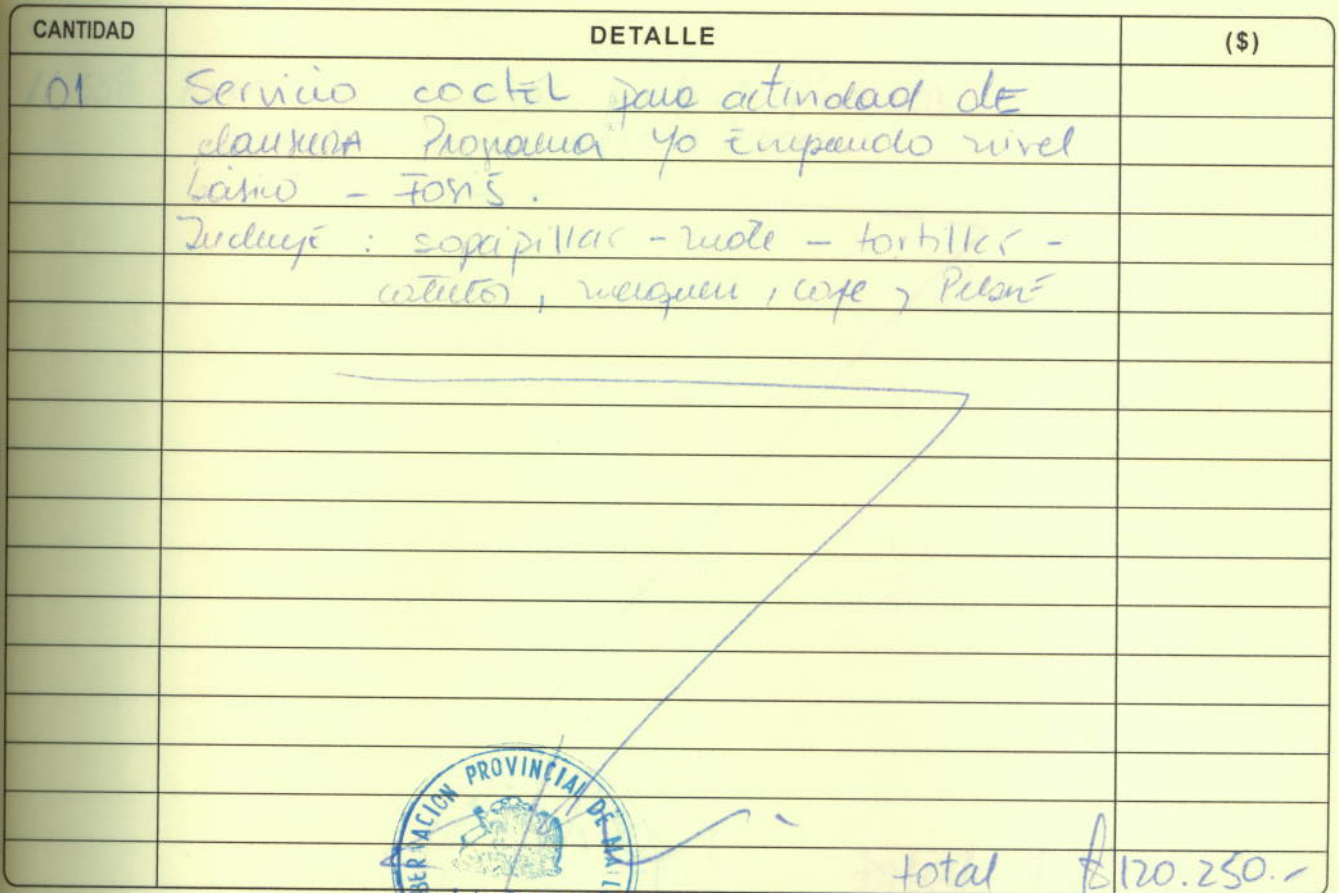 CANTIDAD DETALLE ($)
01 Servicio coctel para actividad de
clausura Programa Yo Emprendo nivel
básico - FOSIS.
Incluye : sopaipillas - mote - tortillas -
catutos, merquen, café, Pebre
PROVINCIAL DE MAL
total $120.250.-